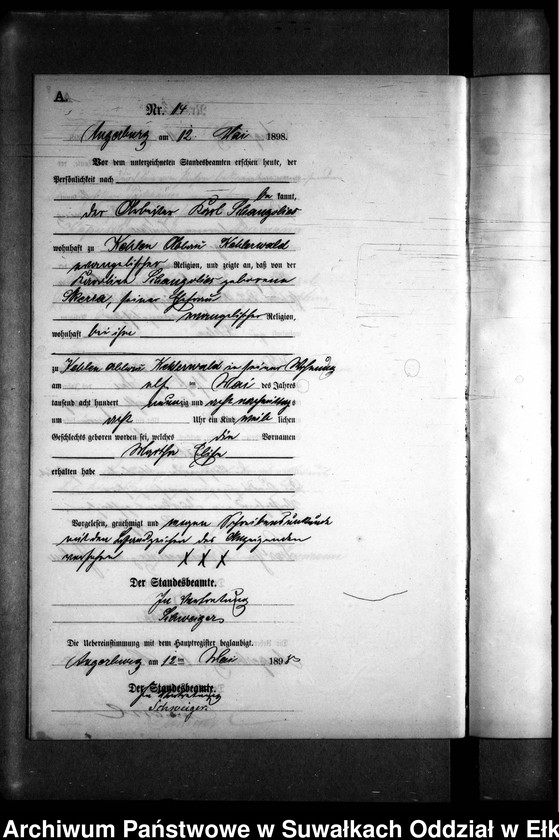 A.
Nr. 14
Angerburg am 12. Mai 1898.
Vor dem unterzeichneten Standesbeamten erschien heute, der
Persönlichkeit nach
be kannt,
der Arbeiter Karl
wohnhaft zu Kehlen Abbau Kehlerwald
evangelischer Religion, und zeigte an, daß von der
Karoline geborene
Skerra, seiner Ehefrau
evangelischer Religion,
wohnhaft bei ihm
zu Kehlen Abbau Kehlerwald in seiner Wohnung
am elf ten Mai des Jahres
tausend acht hundert neunzig und acht nachmittags
um acht Uhr ein Kind weib lichen
Geschlechts geboren worden sei, welches die Vornamen
Martha Elise
erhalten habe
Vorgelesen, genehmigt und wegen Schreibensunkunde
mit den Handzeichen des Anzeigenden
versehen X X X
Der Standesbeamte.
In Vertretung
Schweiger
Die Uebereinstimmung mit dem Hauptregister beglaubigt.
Angerburg am 12ten Mai 1898
Der Standesbeamte.
In Vertretung
Schweiger.
Archiwum Państwowe w Suwałkach Oddział w Ełk